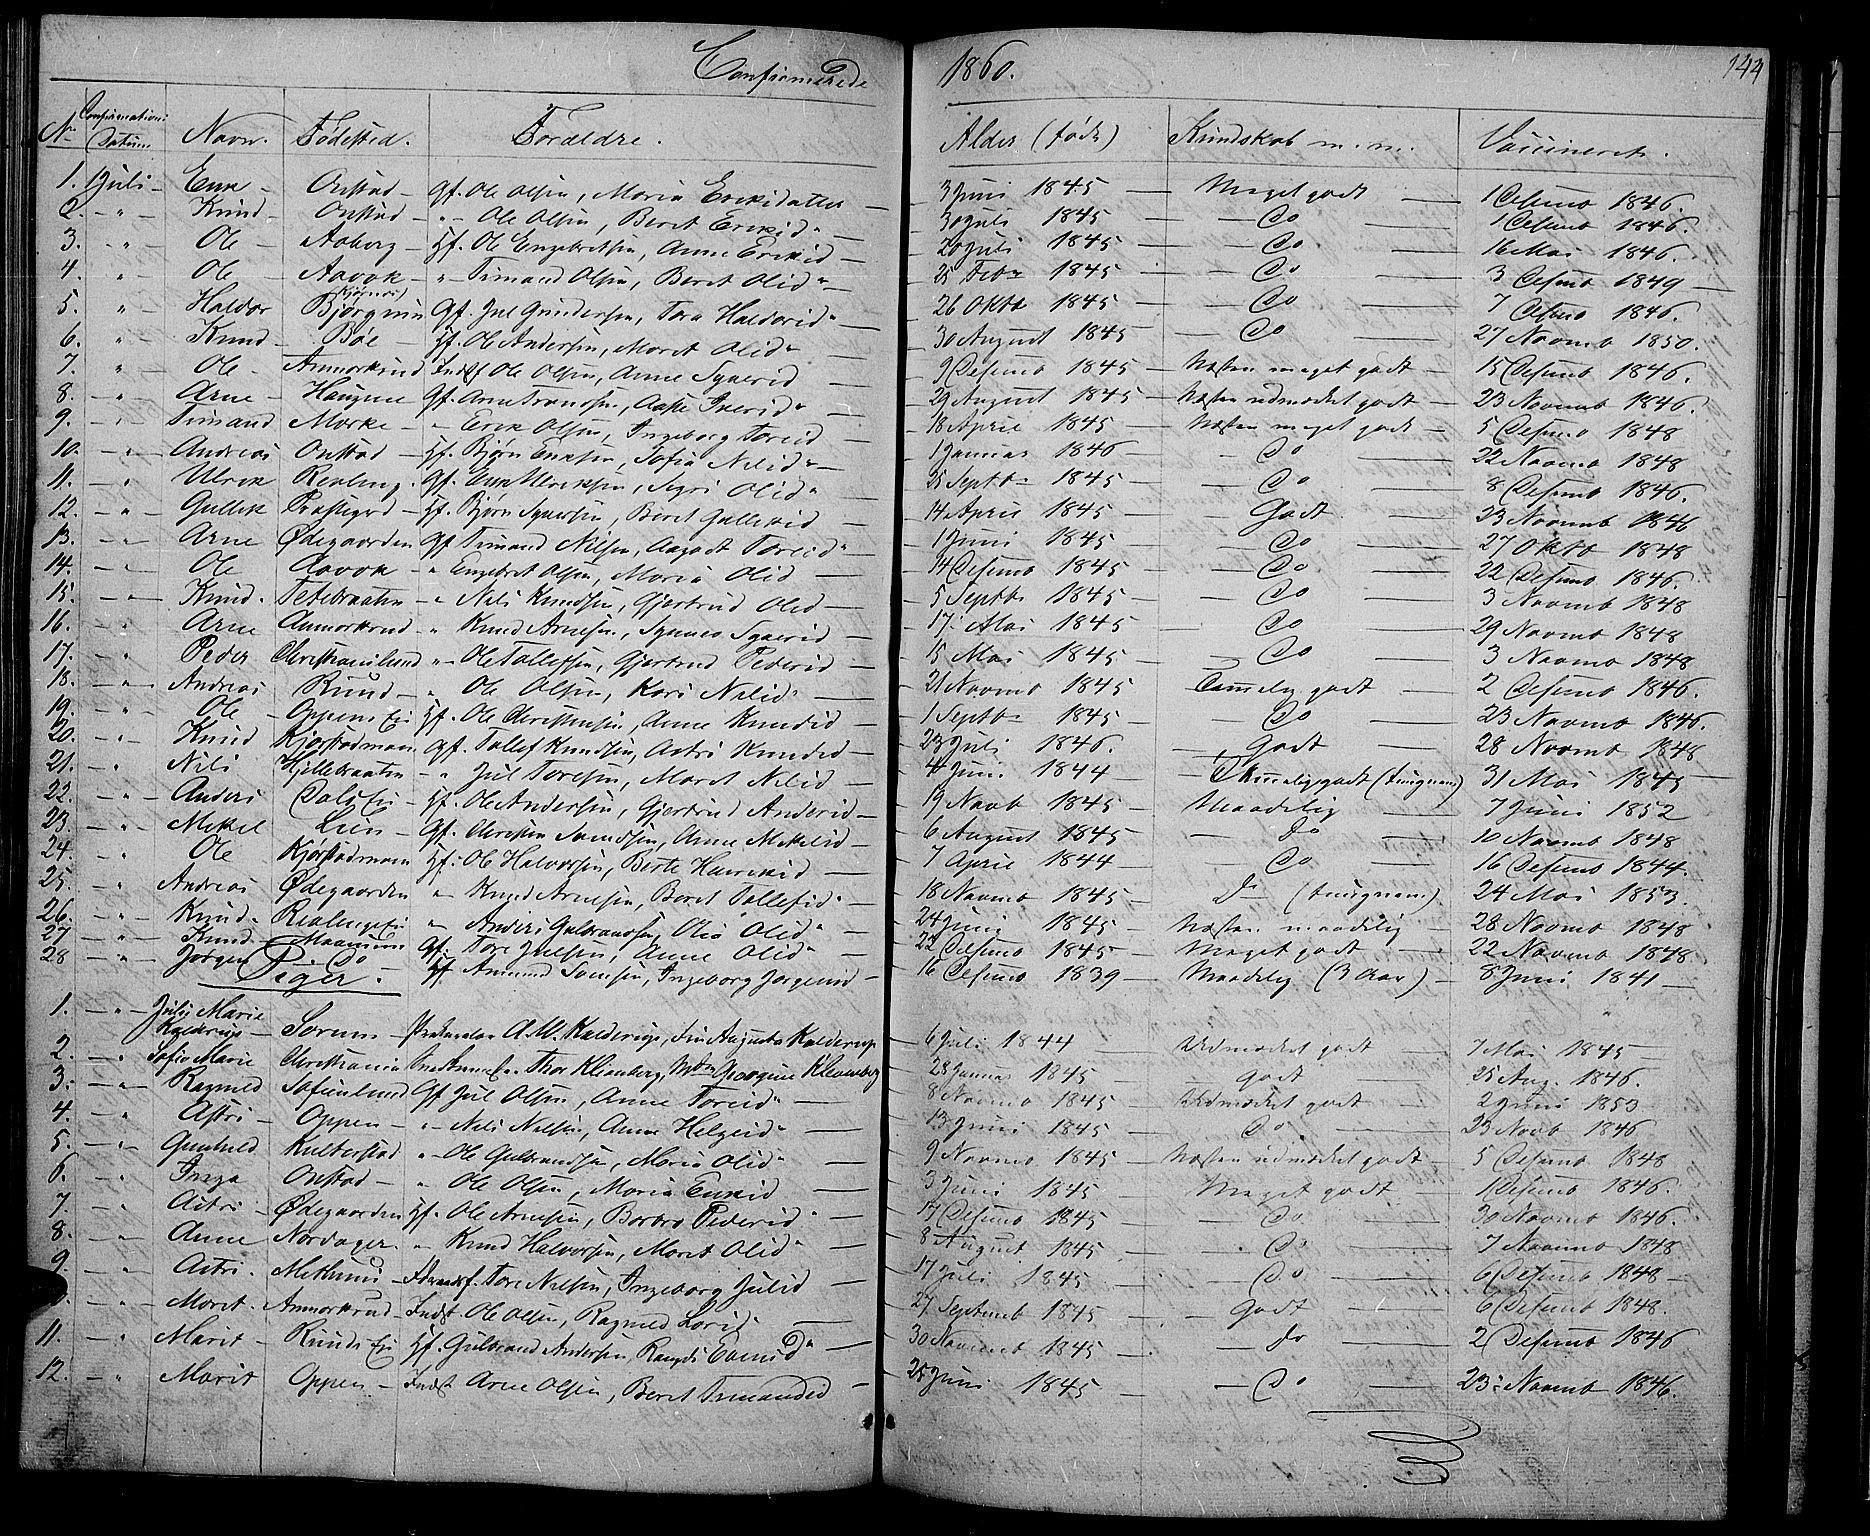 Confirmerede 1860. 144
No Confirmations Datum Navn. Fødested. Forældre. Alder (født) Kundskab m. m. Vaccineret.
1. 1 Juli - Erik - Onstad - Gf. Ole Olsen, Maria Eriksdatter - 3 Juni 1845 - Meget godt - 1 Desemb 1846.
2. - " - Knud - Onstad - " - Ole Olsen, Beret Eriksd" - 30 Juli 1845 - Do - 1 Desemb 1846.
3. - " - Ole - Aaberg - Hf. Ole Engebretsen, Anne Eriksd - 20 Juli 1845 - Do - 16 Mai 1846.
4. - " - Ole - Aavok - " - Timand Olsen, Beret Olsd" - 25 Febr 1845 - Do - 3 Desemb 1849 -
5. " - Haldor Bjørgum (Kjørnes) Gf. Jul Gundersen, Tora Haldorsd" - 26 Oktb 1845 - Do - 7 Desemb 1846.
6. " - Knud - Bøe - Hf. Ole Andersen, Marit Olsd" - 30 August 1845 - Do - 27 Novemb 1850.
7. " - Ole - Ammorkrud Indst Ole Olsen, Anne Syversd - 9 Desemb 1845 - Næsten meget godt - 15 Desemb 1846.
8. - " - Arne - Haugene Gf. Arne Evensen, Aase Iversd" - 29 August 1845 - Næsten udmærket godt - 23 Novemb 1846.
9. - " - Timand Morke - " - Erik Olsen, Ingeborg Toresd - 18 April 1845 - Næsten meget godt - 5 Desemb 1848
10. - " - Andreas Onstad - Hf. Bjørn Eriksen, Sofia Nilsd" - 1 Januar 1846 - Do - 22 Novemb 1848
11. - " - Ulrik Revling. Gf. Erik Ulriksen, Sigri Olsd" - 25 Septb 1845 - Do - 8 Desemb 1846.
12. - " - Gullik Præstegrd - Hf. Bjørn Syversen, Beret Gulliksd - 14 April 1845 - Godt - 23 Novemb 1846
13. - " - Arne Ødegaarden Gf Timand Nilsen, Aagodt Toresd" - 1 Juni 1845 - Do - 27 Oktb 1848
14. - " - Ole Aavok - " Engebret Olsen, Maria Olsd - 14 Desemb 1845 - Do - 22 Desemb 1846.
15. - " - Knud. Tedebraaten - " Nils Knudsen, Gjertrud Olsd - 5 Septb 1845 - Do - 3 Novemb 1848
16. - " - Arne Ammorkrud - " Knud Arnesen, Synnev Syversd - 17 Mai 1845 - Do - 29 Novemb 1848
17. - " - Peder Christianslund " - Ole Tollefsen, Gjertrud Pedersd - 15 Mai 1845 - Do - 3 Novemb 1848
18. - " - Andreas Ruud - " Ole Olsen, Kari Nilsd" - 21 Novemb 1845 - Temmelig godt - 2 Desemb 1846.
19. - " - Ole - Oppens Ei Hf. Ole Christensen, Anne Knudsd - 1 Septb 1845 - Do - 23 Novemb 1846.
20. - " - Knud Kjorstadmoen Gf. Tollef Knudsen, Astri Knudsd - 23 Juli 1846. - Godt - 28 Novemb 1848
21. - " - Nils Hjellebraaten - " Jul Toresen, Marit Nilsd - 4 Juni 1844 - Temmelig godt (tungnem) 31 Mai 1845
22. - " - Anders Dals Ei - Hf. Ole Andersen, Gjertrud Andersd - 19 Novb 1845 - Maadelig - 7 Juni 1852
23. - " - Mikkel Lien - Gf. Christen Svendsen, Anne Mikkelsd - 6 August 1845 - Do - 10 Novemb 1848
24. - " - Ole Kjorstadmoen Hf. Ole Halvorsen, Berte Hansd - 7 April 1844 - Do - 16 Desemb 1844.
25. - " - Andreas Ødegaarden " Knud Arnesen, Beret Tollefsd" - 18 Novemb 1845 - Do (tungnem) - 24 Mai 1853.
26. - " - Knud - Revlings Ei " Anders Gulbrandsen, Olia Olsd" - 24 Juni 1845 - Næsten maadelig - 28 Novemb 1848
27 - " - Knud Moamoen Gf. Tore Julsen, Anne Olsd" - 22 Desemb 1845 - Meget godt - 22 Novemb 1848.
28 - " - Jørgen Do Hf Amund Svensen, Ingeborg Jørgensd - 16 Desemb 1839 - Maadelig (3 Aar) - 8 Juni 1841 -
Piger.
1. - " - Julij Marie
Kaldrup - Sorum - Prokurator A. W. Kalderup, Fru Augusta Kalderup 6 Juli 1844 - Udmærket godt - 7 Mai 1845 -
2. - " - Sofie Marie Christiania Thor Klionberg, Georgine Klionberg 28 Januar 1845 - Godt - 25 Aug. 1846.
3. - " - Ragnild Sofieslund Gf Jul Olsen, Anne Toresd" - 8 Novemb 1845 - Udmærket godt - 2 Juni 1853
4. - " - Astri - Oppen - " Nils Nilsen, Anne Helgesd" - 13 Juni 1845 - Do - 23 Novb 1846
5. - " - Gunhild Kulterstad " Ole Gulbrandsen, Maria Olsd" - 9 Novemb 1845 - Næsten udmærket godt - 5 Desemb 1848
6. - " - Inga Onstad - " Ole Olsen, Maria Eriksd - 3 Juni 1845 - Meget godt - 1 Desemb 1846.
7. - " - Astri - Ødegaarden Hf. Ole Arnesen, Barbro Pedersd" - 17 Desemb 1845 - Do - 30 Novemb 1846.
8. - " - Anne Nordager - " Knud Halvorsen, Marit Olsd" - 8 August 1845 - Do - 7 Novemb 1848
9. - " - Astri. Methuus - Tore Nilsen, Ingeborg Julsd - 17 Juli 1845 - Do - 6 Desemb 1848 -
- " - Marit - Ammorkrud - Indst Ole Olsen, Ragnild Larsd" - 27 Septemb 1845 - Godt - 6 Desemb 1848.
11. - " Marit - Ruuds Ei Hf. Gulbrand Andersen, Rangdi Evensd" - 30 Novemb 1845 - Do - 2 Desemb 1846
12. - " Marit Oppen - Indst Arne Olsen, Beret Timandsd - 25 Juni 1845 - Do - 23 Novemb 1846.